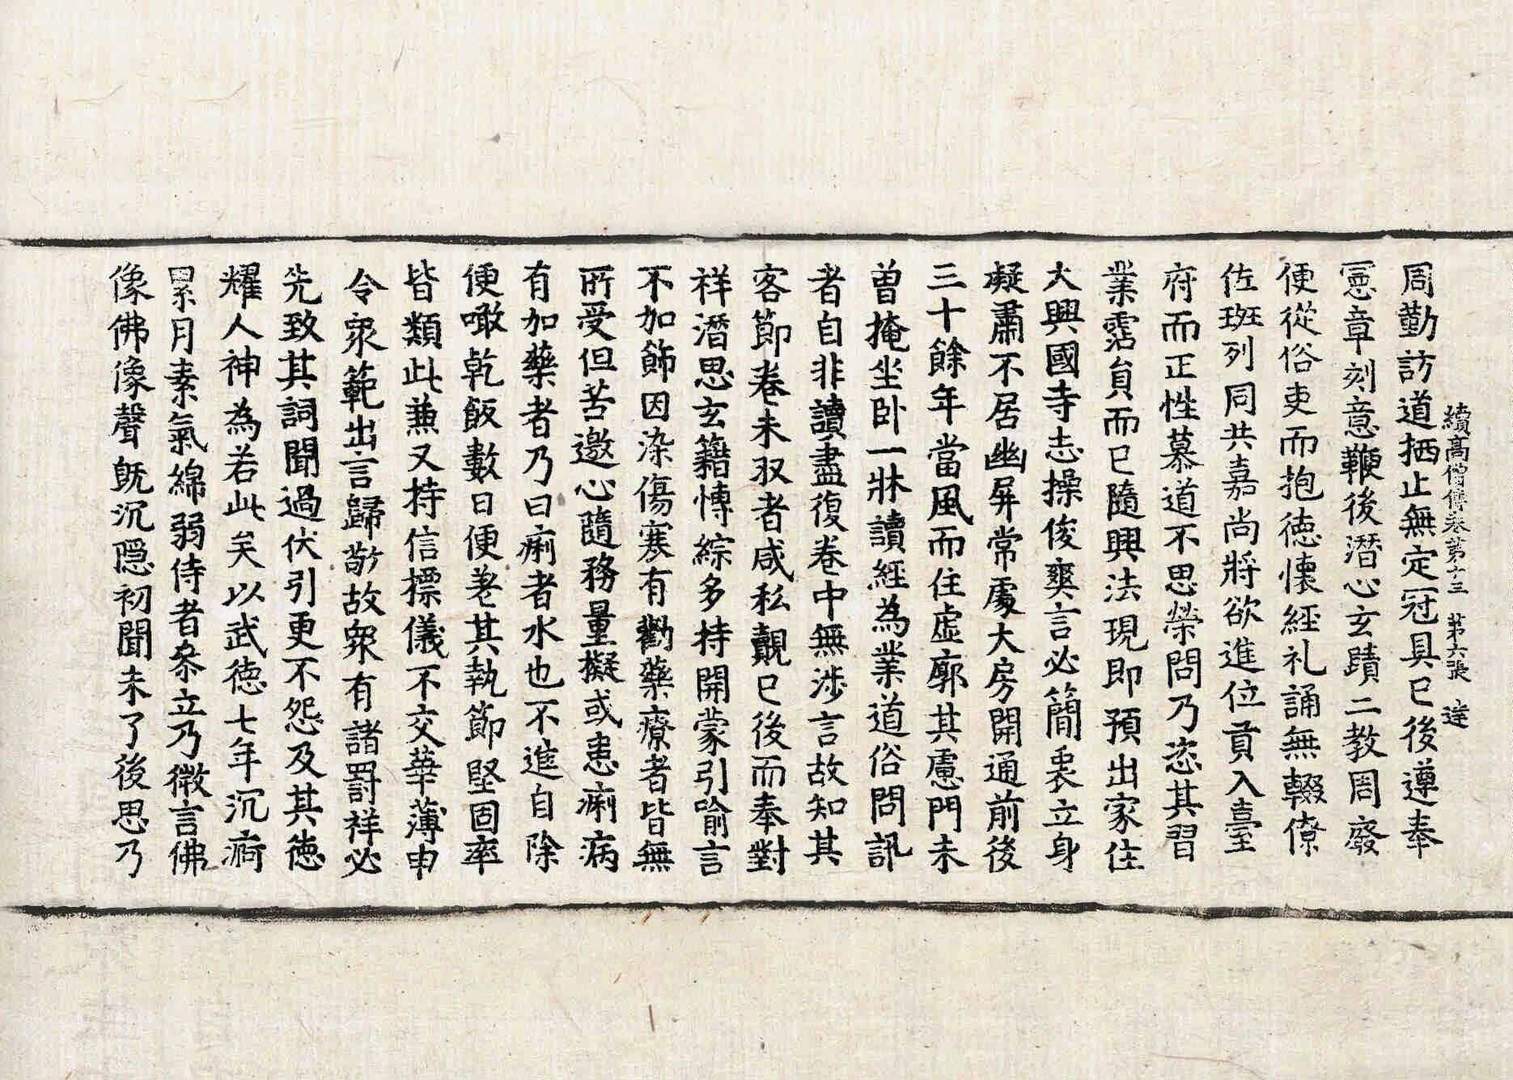 續高僧傳卷第十三 第六張 達
周勤訪道栖止無定冠具已後遵奉
憲章刻意鞭後潛心玄蹟二教周廢
便從俗吏而抱德懷經礼誦無輟僚
佐班列同共嘉尚將欲進位貢入臺
府而正性慕道不思榮問乃恣其習
業霑負而已隨興法現即預出家住
大興國寺志操俊爽言必簡衷立身
凝肅不居幽屏常處大房開通前後
三十餘年當風而住虛廓其慮門未
曽掩坐卧一牀讀經為業道俗問訊
者自非讀盡復卷中無涉言故知其
客節卷未収者咸私覿已後而奉對
祥潛思玄籍慱綜多持開蒙引喻言
不加飾因染傷寒有勸藥療者皆無
所受但苦邀心隨務量擬或患痢病
有加藥者乃曰痢者水也不進自除
便噉乾飯數日便差其執節堅固率
皆類此兼又持信標儀不交華薄申
令衆範出言歸敬故衆有諸罰祥必
先致其詞聞過伏引更不怨及其徳
耀人神為若此矣以武德七年沉痾
累月素氣綿弱侍者叅立乃微言佛
像佛像聲旣沉隱初聞未了後思乃